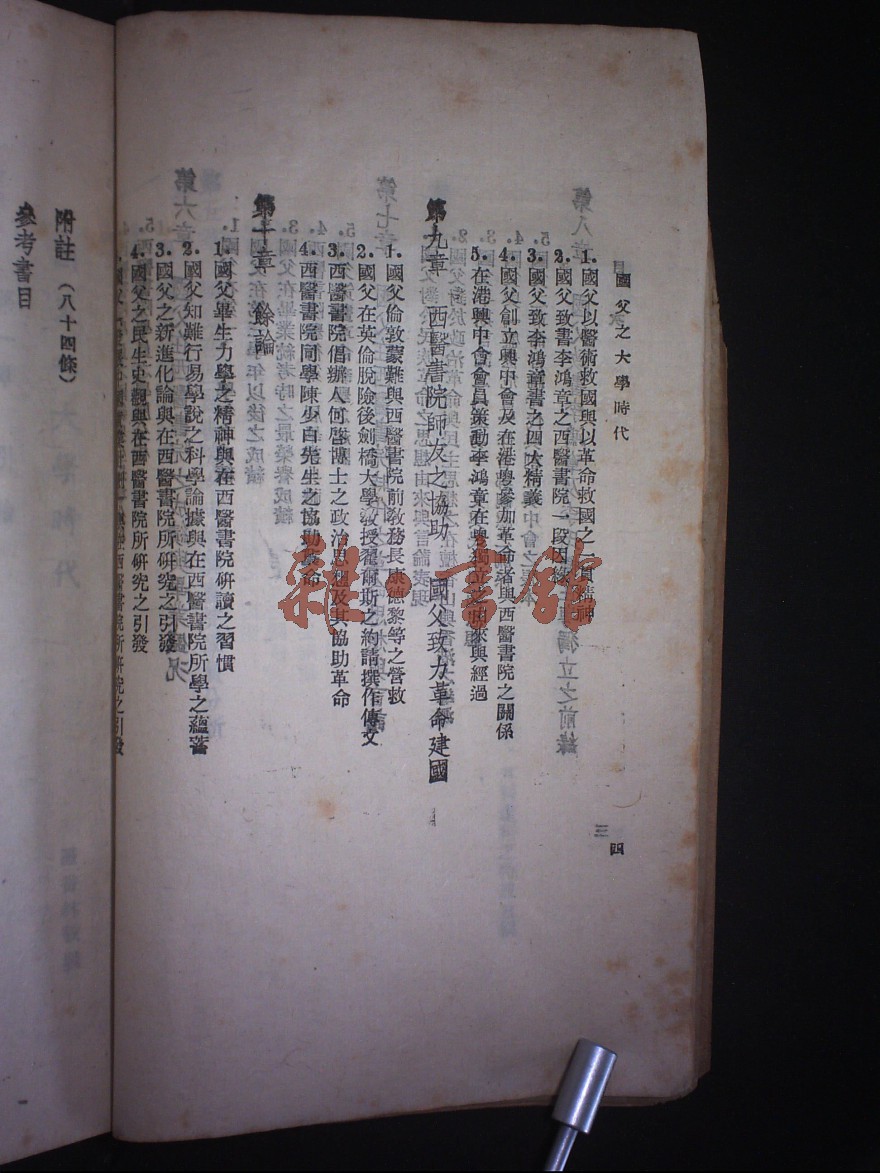 國父之大學時代
四
1. 國父以醫術救國與以革命救國之一貫精神
2. 國父致書李鴻章之西醫書院一段因緣
3. 國父致李鴻章書之四大精義
4. 國父創立興中會及在港粵參加革命者與西醫書院之關係
5. 在港興中會會員策動李鴻章在粵獨立之由來與經過
第九章 西醫書院師友之協助 國父致力革命建國
1. 國父倫敦蒙難與西醫書院前教務長康德黎等之營救
2. 國父在英倫脫險後劍橋大學教授翟爾斯之約請撰作傳文
3. 西醫書院倡辦人何啓博士之政治思想及其協助革命
4. 西醫書院同學陳少白先生之協助革命
第十章 餘論
1. 國父畢生力學之精神與在西醫書院研讀之習慣
2. 國父知難行易學說之科學論據與在西醫書院所學之蘊蓄
3. 國父之新進化論與在西醫書院所研究之引發
4. 國父之民生史觀與在西醫書院所研究之引發
附註（八十四條）
參考書目
雜·書館